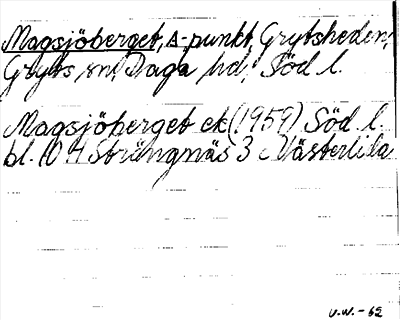 Magsjöberget, s-punkt, Grytsheden,
Gryts sn, Daga hd, Söd l.
Magsjöberget ek (1959) Söd l.
bl. 10 H Strängnäs 3 c Västerlida
U.W.-62